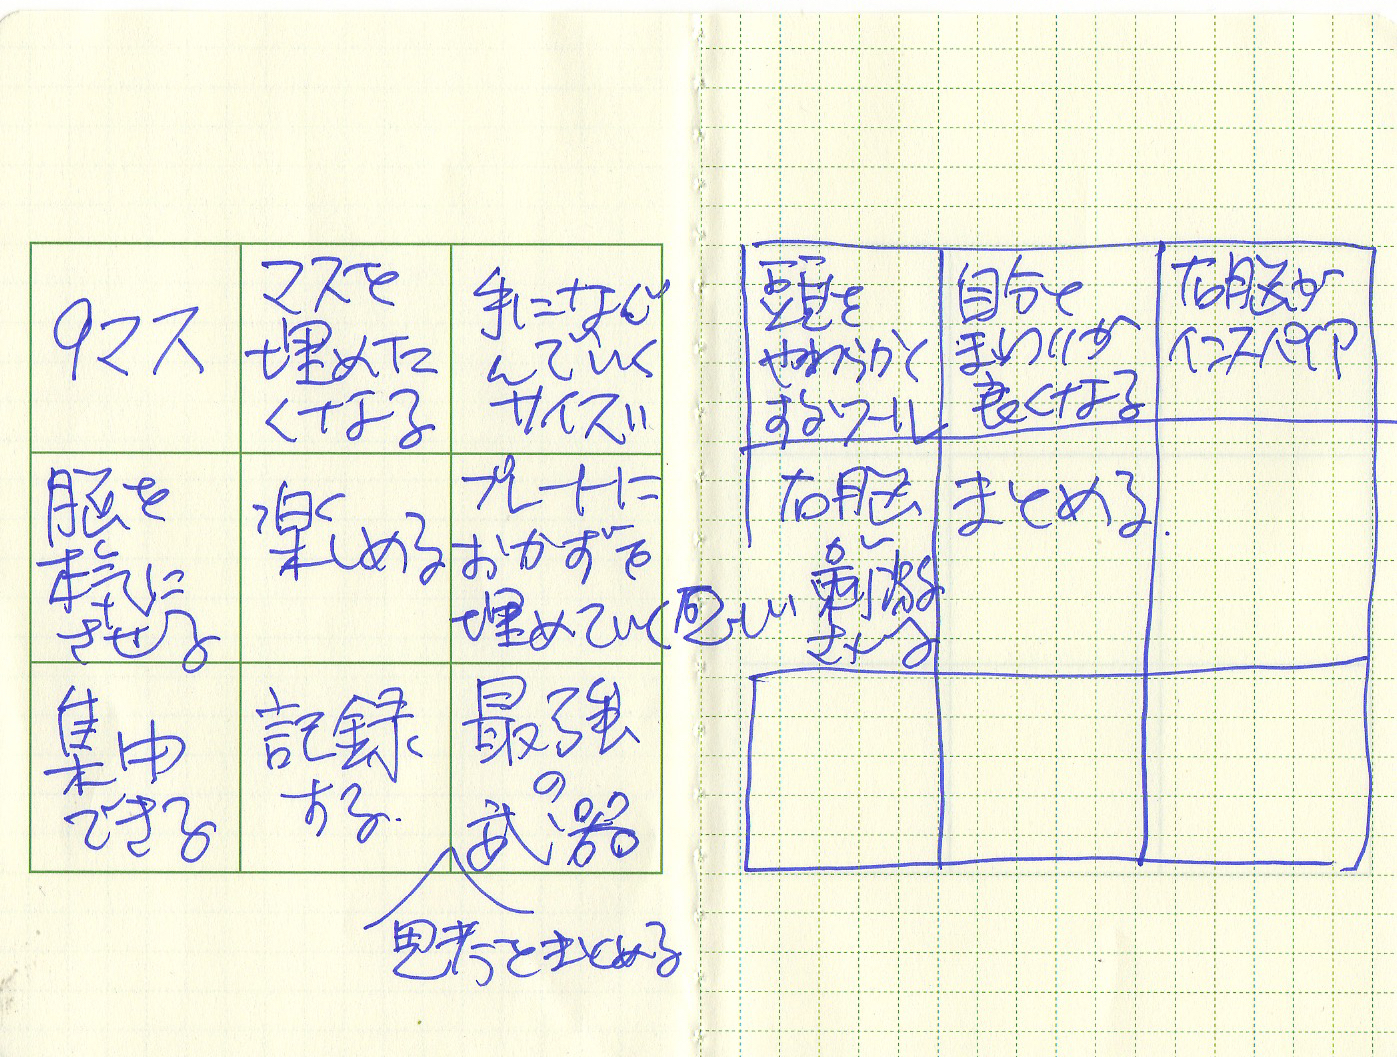 9マス
マスを
埋めた
くなる
手になじ
んでいく
サイズ
脳を
本気に
させる
楽しめる
プレートに
おかずを
埋めていく
集中
できる
記録
する.
最強
の
武器
思考をまとめる
頭を
やわらかく
するツール
自分と
まわりが
良くなる
右脳が
インスパイア
右脳
が
刺激
される
まとめる.